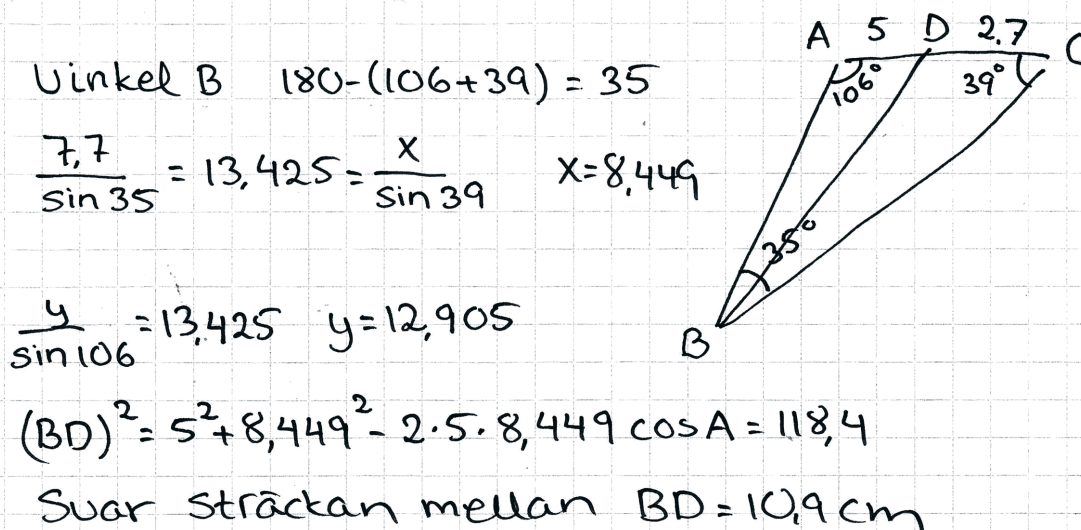 A 5 D 2.7 C
Vinkel B 180-(106+39) = 35
106° 39°
7,7/sin 35 = 13,425 = x/sin 39 x=8,449
35°
y/sin 106 = 13,425 y=12,905
B
(BD)² = 5²+8,449² - 2·5·8,449 cos A = 118,4
Svar sträckan mellan BD = 10,9 cm